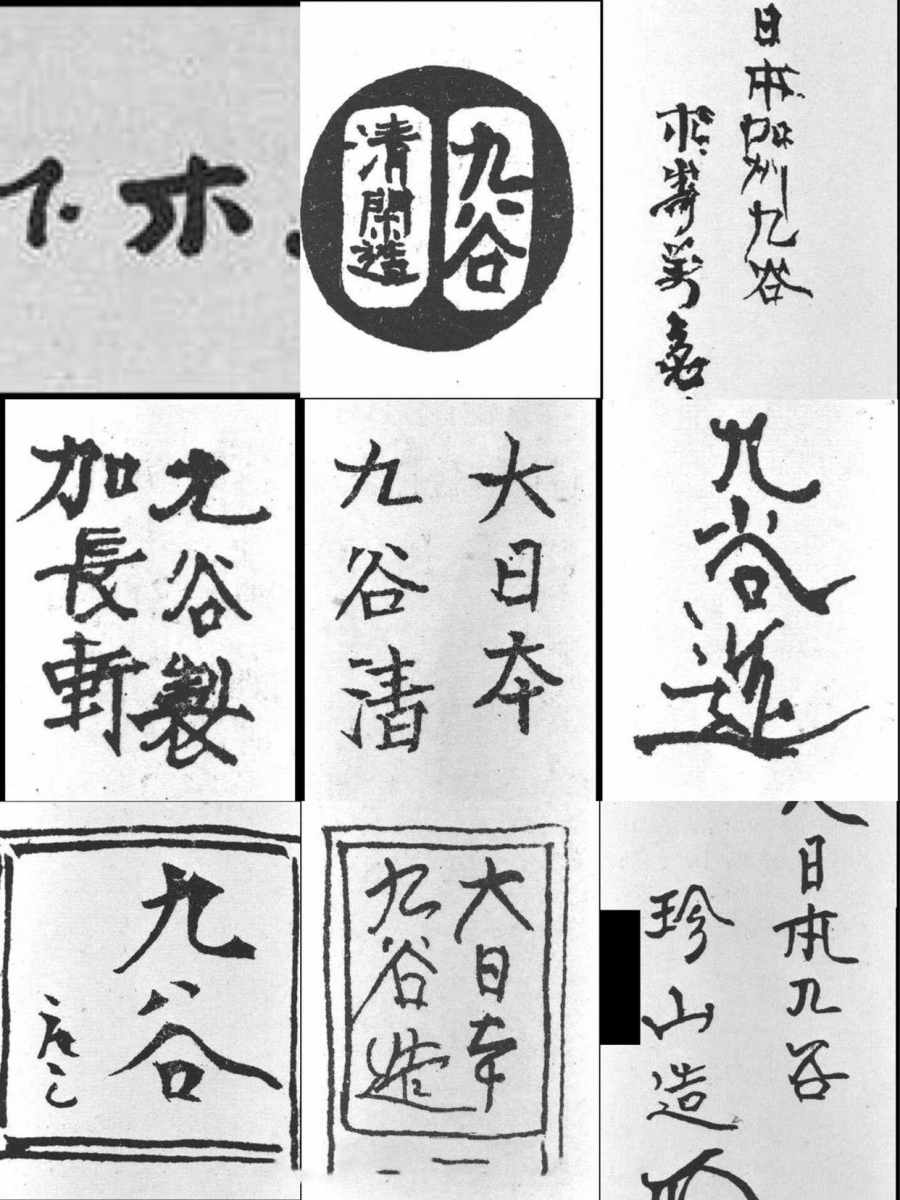 九谷
清閑造
日本加州九谷
九谷製
加長軒
大日本
九谷清
九谷造
九谷
大日本
九谷造
大日本九谷
珍山造